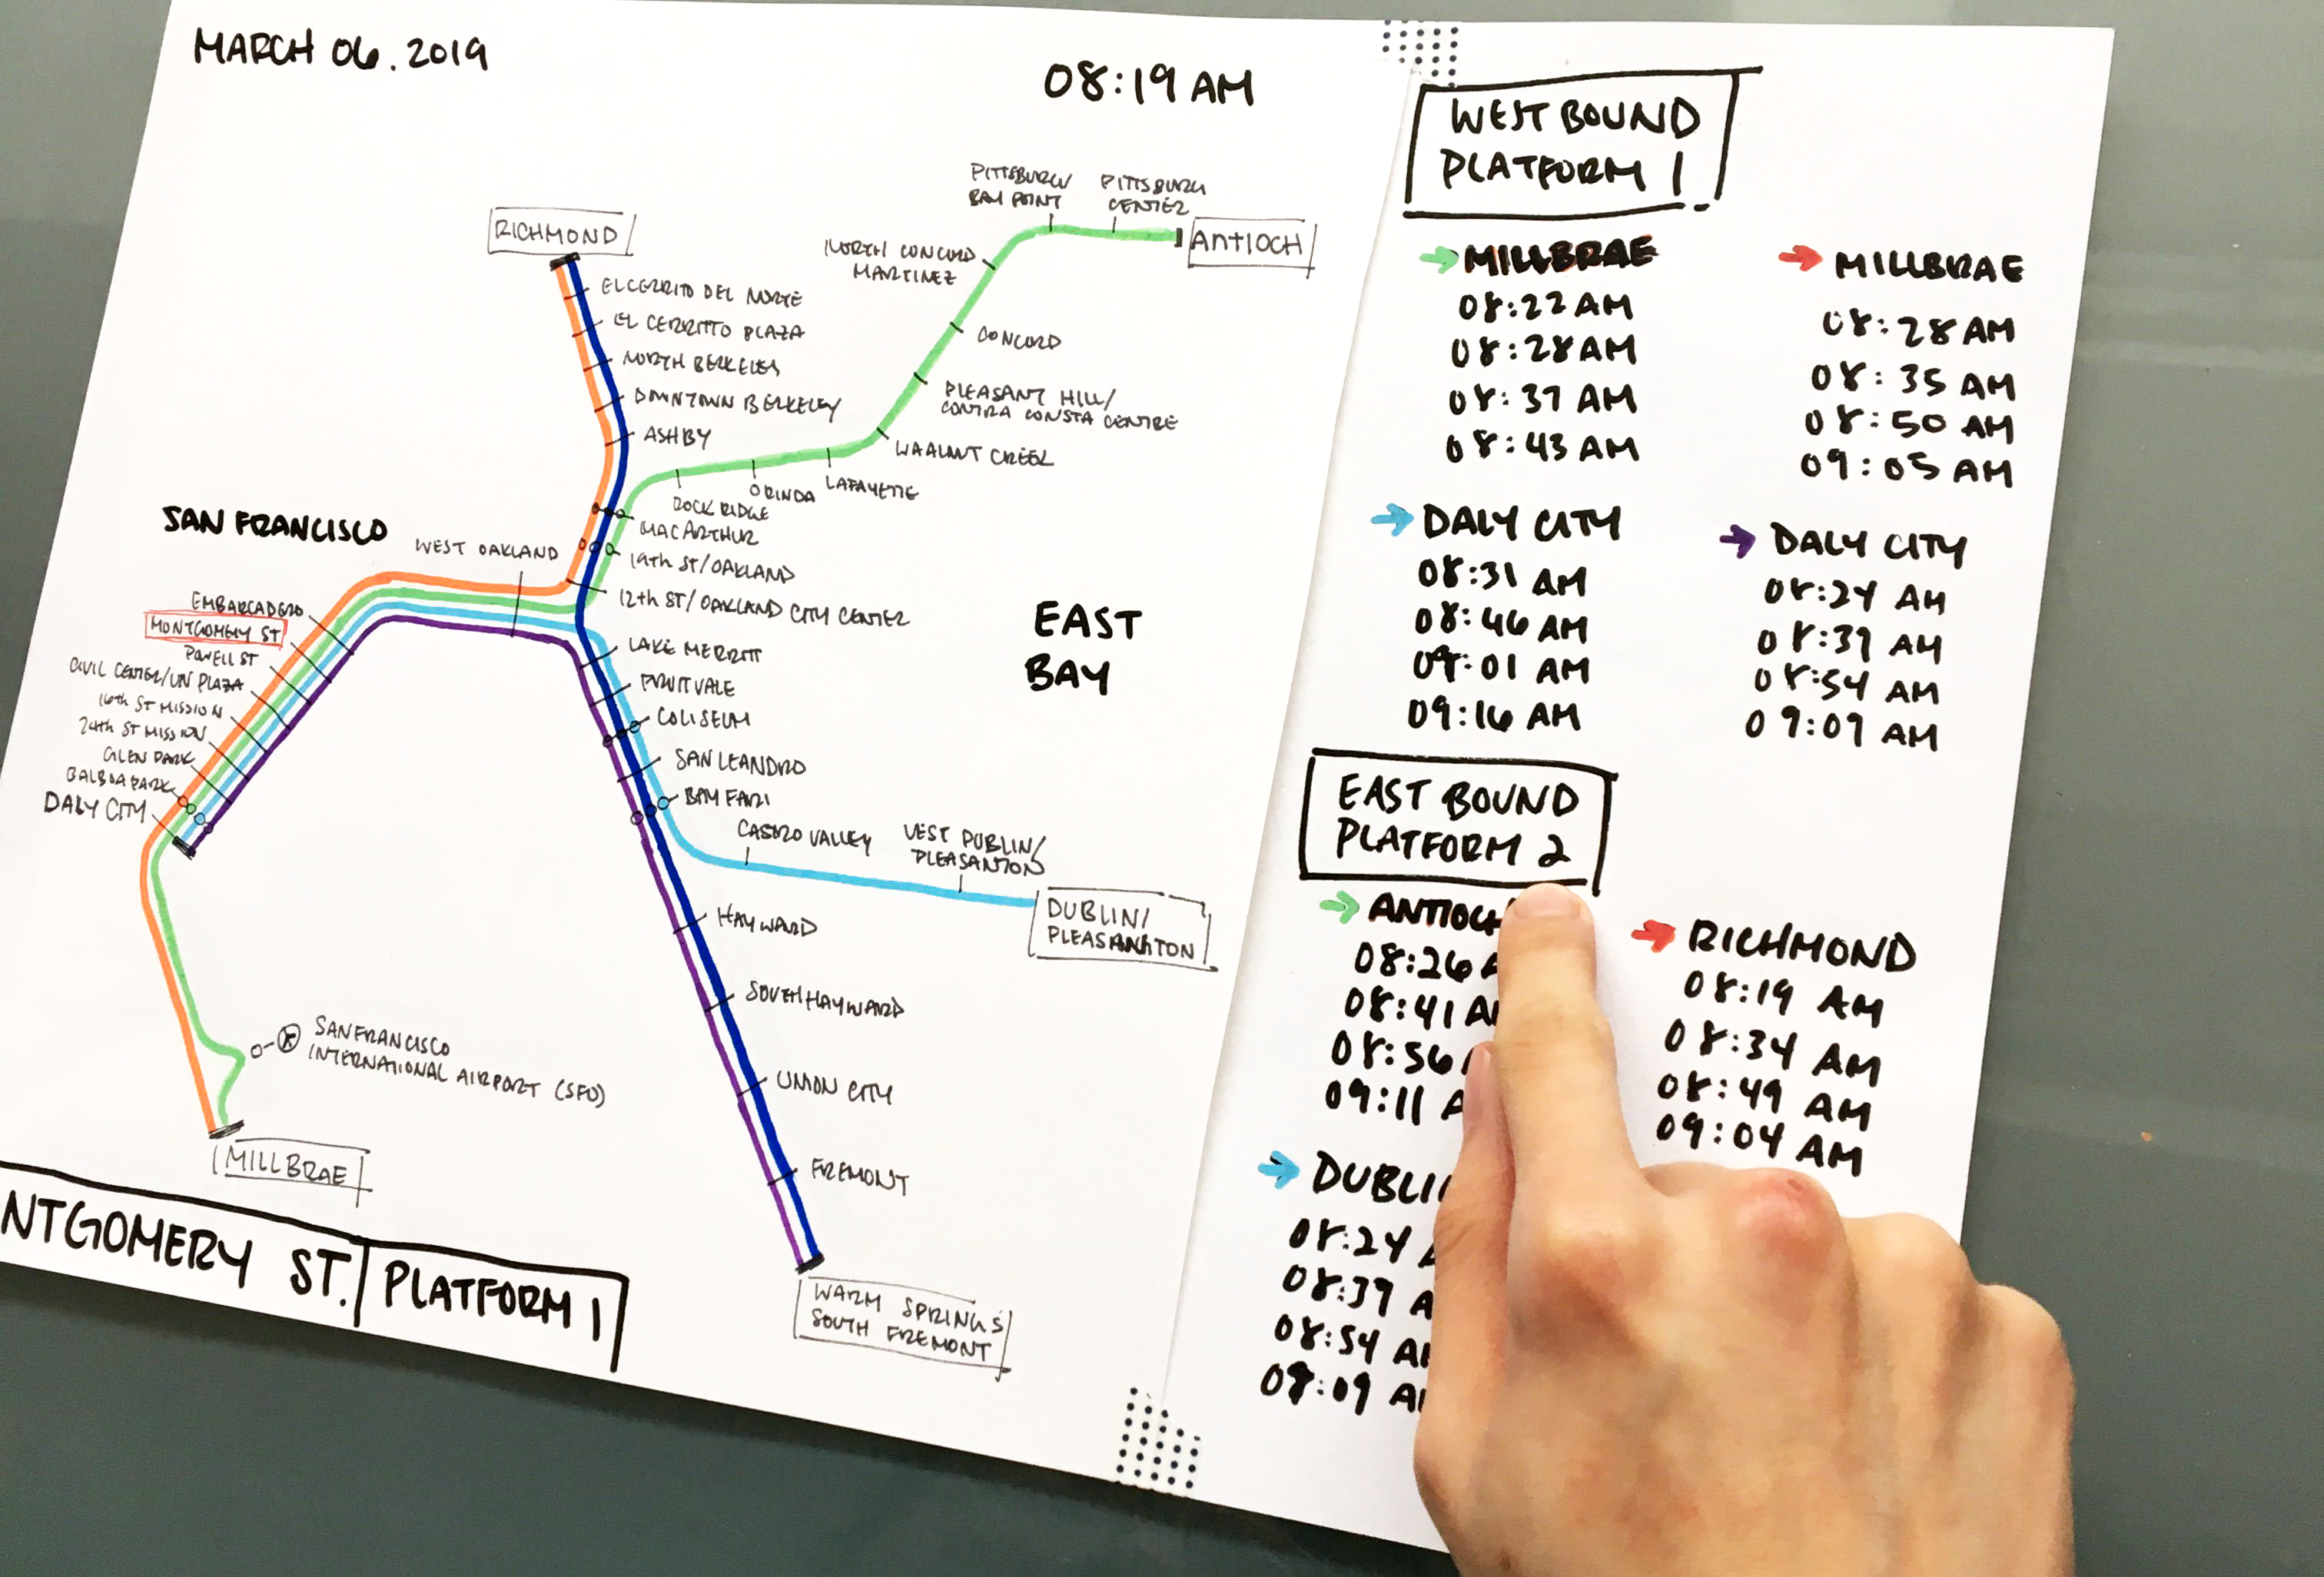 MARCH 06. 2019
08:19 AM
RICHMOND
EL CERRITO DEL NORTE
EL CERRITTO PLAZA
NORTH BERKELEY
DOWNTOWN BERKELEY
ASHBY
PITTSBURG/
BAY POINT
PITTSBURG
CENTER
ANTIOCH
NORTH CONCORD
MARTINEZ
CONCORD
PLEASANT HILL/
CONTRA CONSTA CENTRE
WAALNUT CREEK
LAFAYETTE
ORINDA
ROCK RIDGE
MACARTHUR
19th ST/OAKLAND
12th ST/OAKLAND CITY CENTER
SAN FRANCISCO
WEST OAKLAND
EMBARCADERO
MONTGOMERY ST
POWELL ST
CIVIL CENTER/UN PLAZA
16th ST MISSION
24th ST MISSION
GLEN PARK
BALBOA PARK
DALY CITY
EAST
BAY
LAKE MERRITT
FRUITVALE
COLISEUM
SAN LEANDRO
BAY FARI
CASTRO VALLEY
WEST DUBLIN/
PLEASANTON
DUBLIN/
PLEASANTON
HAYWARD
SOUTH HAYWARD
UNION CITY
FREMONT
WARM SPRINGS
SOUTH FREMONT
SANFRANCISCO
INTERNATIONAL AIRPORT (SFO)
MILLBRAE
NTGOMERY ST.
PLATFORM 1
WEST BOUND
PLATFORM 1
MILLBRAE
08:22 AM
08:28 AM
08:37 AM
08:43 AM
MILLBRAE
08:28 AM
08:35 AM
08:50 AM
09:05 AM
DALY CITY
08:31 AM
08:46 AM
09:01 AM
09:16 AM
DALY CITY
08:24 AM
08:39 AM
08:54 AM
09:09 AM
EAST BOUND
PLATFORM 2
ANTIOCH
08:26 A
08:41 AM
08:56
09:11 A
RICHMOND
08:19 AM
08:34 AM
08:49 AM
09:04 AM
DUBLI
08:24
08:39 A
08:54 AM
09:09 AM